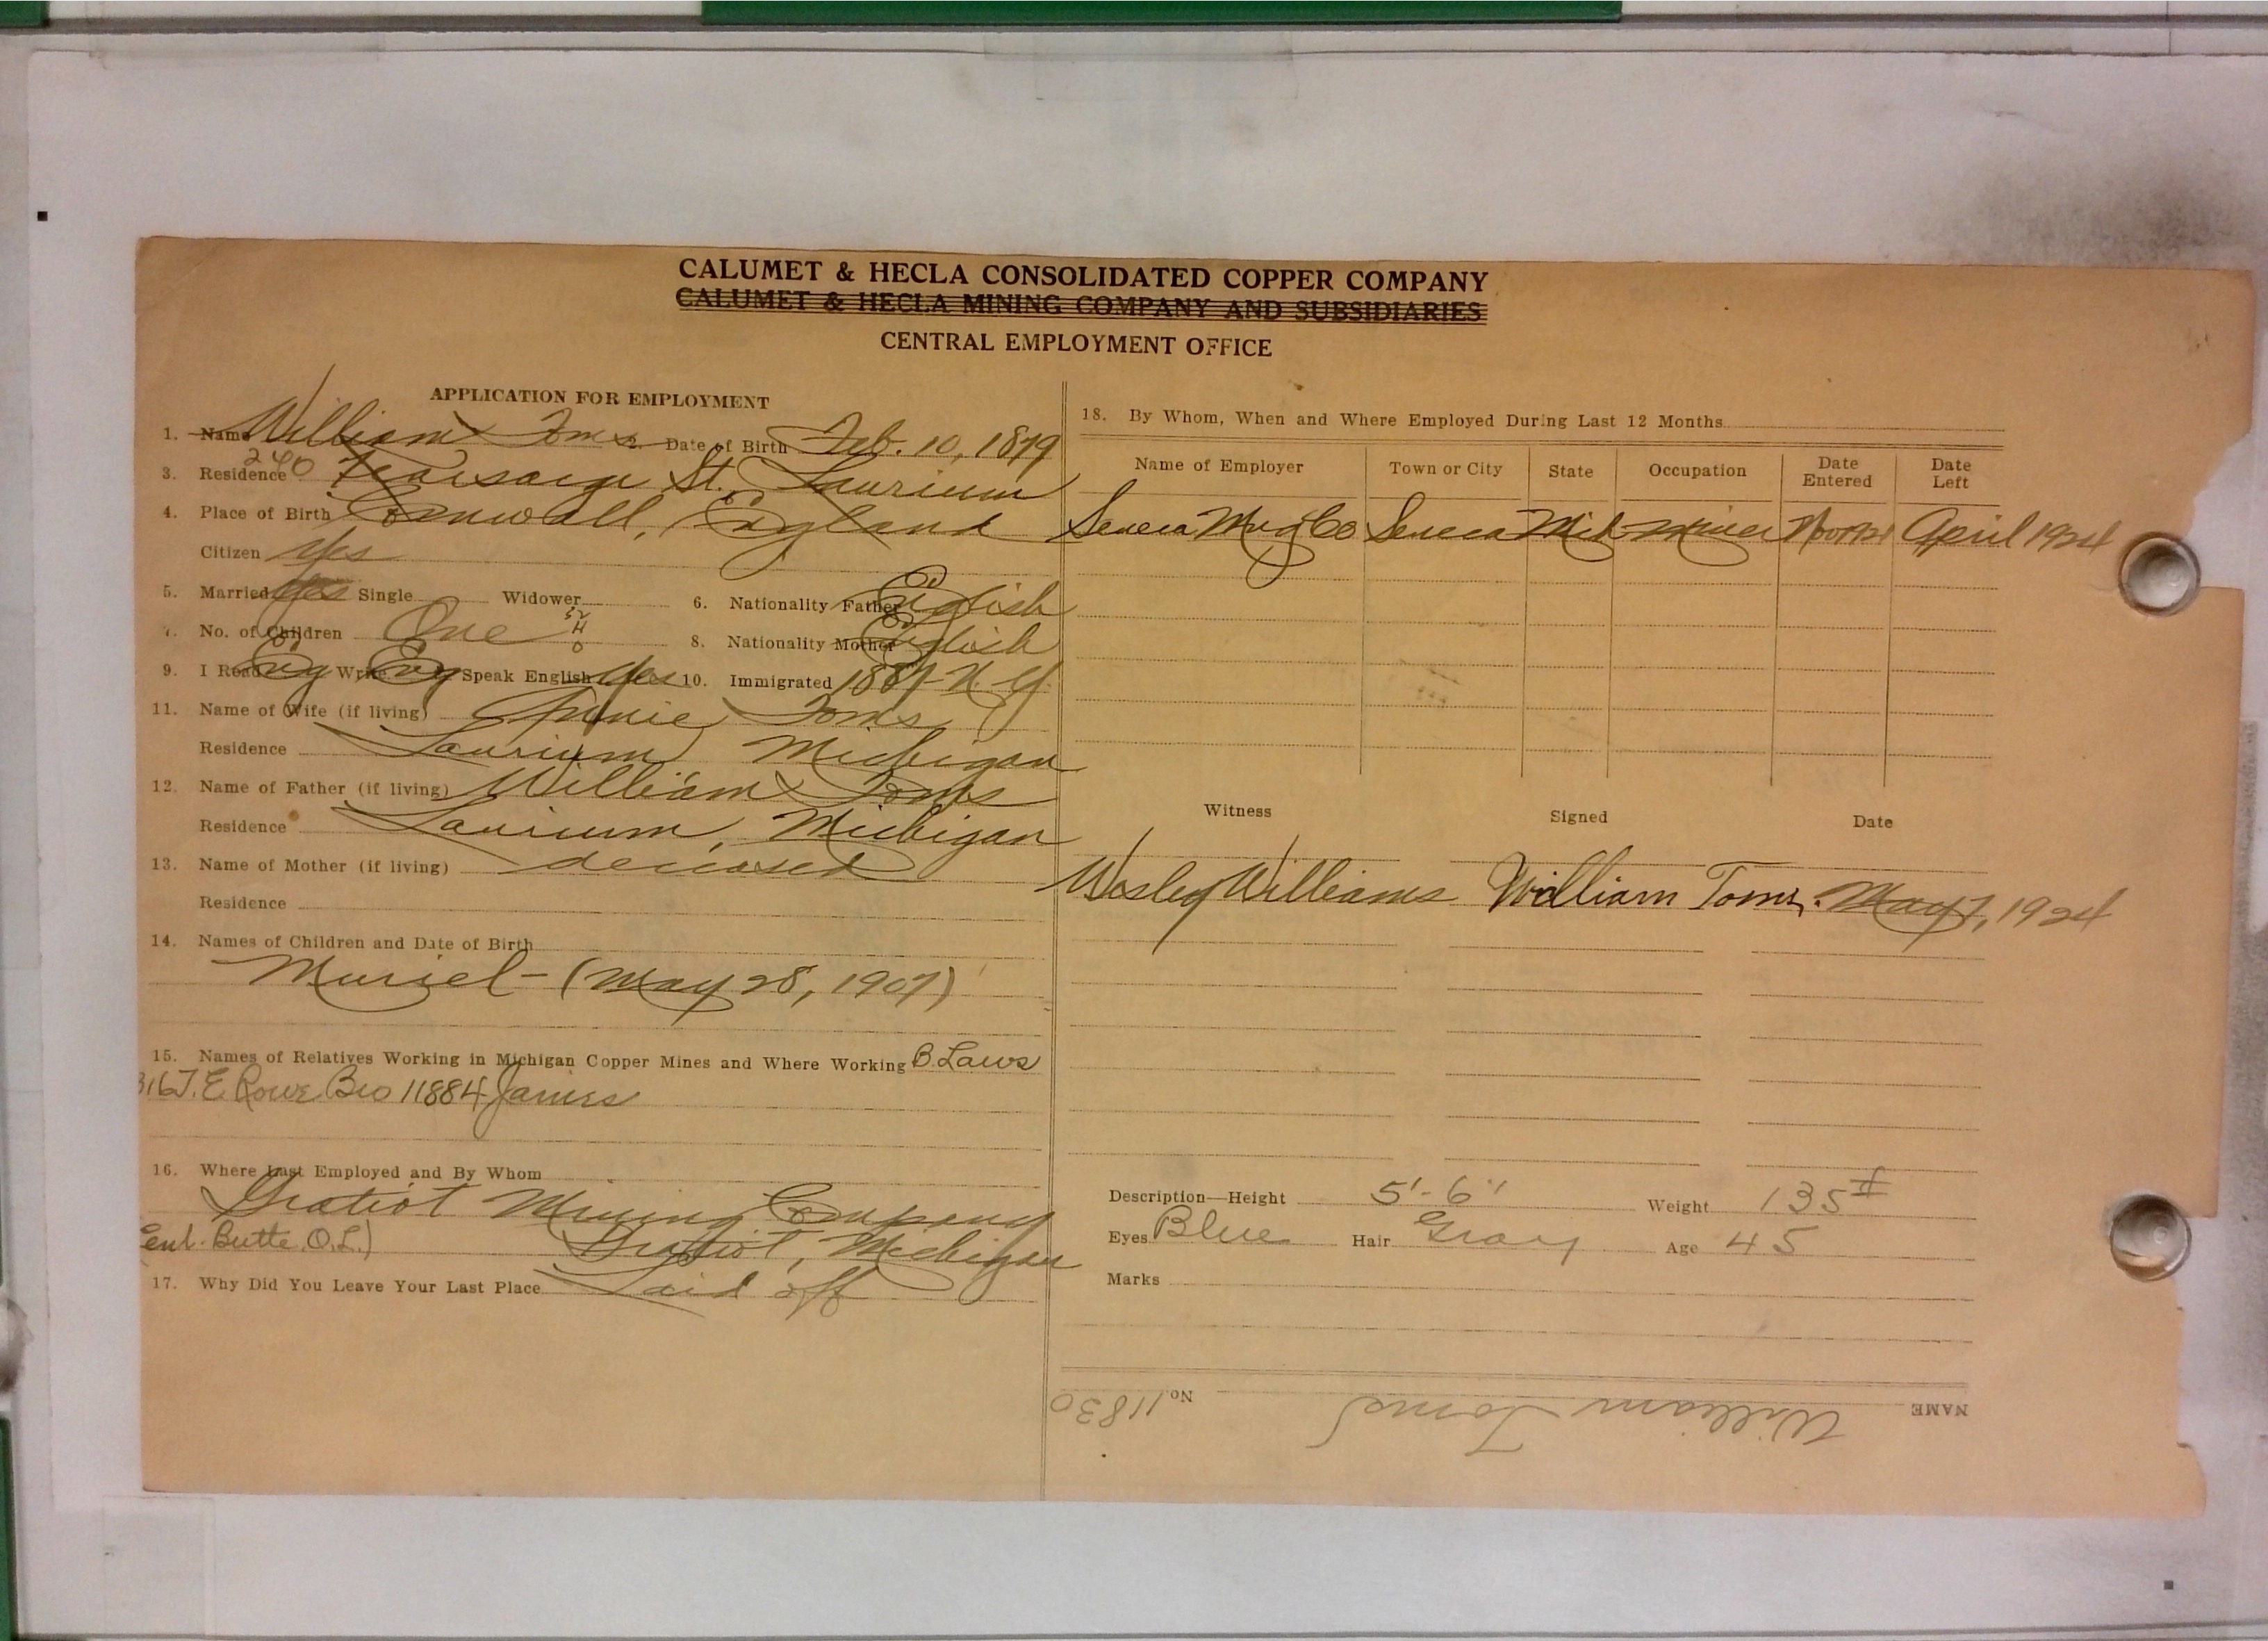 CALUMET & HECLA CONSOLIDATED COPPER COMPANY
CALUMET & HECLA MINING COMPANY AND SUBSIDIARIES
CENTRAL EMPLOYMENT OFFICE
APPLICATION FOR EMPLOYMENT
1. Name William Toms 2. Date of Birth Feb. 10, 1879
3. Residence 240 Kearsarge St., Laurium
4. Place of Birth Cornwall, England
Citizen Yes
5. Married Yes Single Widower 6. Nationality Father English
7. No. of Children One 8. Nationality Mother English
9. I Read Eng Write Eng Speak English Yes 10. Immigrated 1887 - N.Y.
11. Name of Wife (if living) Annie Toms
Residence Laurium Michigan
12. Name of Father (if living) William Toms
Residence Laurium, Michigan
13. Name of Mother (if living) deceased
Residence
14. Names of Children and Date of Birth
Muriel - (May 28, 1907)
15. Names of Relatives Working in Michigan Copper Mines and Where Working B. Laws
J. E. Rowe Bro 11884 James
16. Where Last Employed and By Whom
Gratiot Mining Company
Butte, O.L.) Gratiot, Michigan
17. Why Did You Leave Your Last Place Laid off
18. By Whom, When and Where Employed During Last 12 Months
Name of Employer Town or City State Occupation Date Entered Date Left
Seneca Mng Co Seneca Mich Miner April 1924
Witness Signed Date
Wesley Williams William Toms. May 7, 1924
Description—Height 5'-6" Weight 135#
Eyes Blue Hair Gray Age 45
Marks
NAME William Toms No. 11830